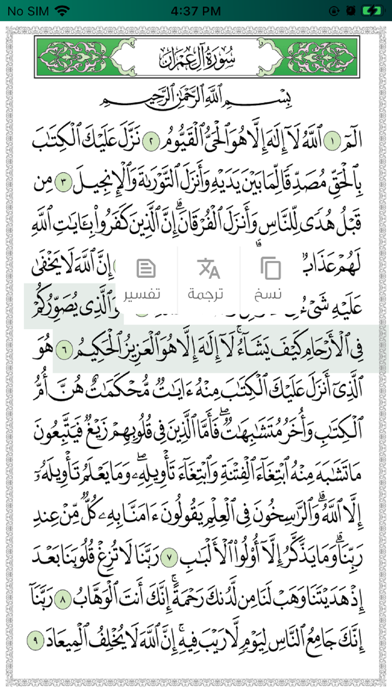 No SIM 4:37 PM
سُورَةُ آلِ عِمْرَانَ
بِسْمِ ٱللَّهِ ٱلرَّحْمَٰنِ ٱلرَّحِيمِ
الٓمٓ ١ ٱللَّهُ لَآ إِلَٰهَ إِلَّا هُوَ ٱلْحَىُّ ٱلْقَيُّومُ ٢ نَزَّلَ عَلَيْكَ ٱلْكِتَٰبَ
بِٱلْحَقِّ مُصَدِّقًا لِّمَا بَيْنَ يَدَيْهِ وَأَنزَلَ ٱلتَّوْرَىٰةَ وَٱلْإِنجِيلَ ٣ مِن
قَبْلُ هُدًى لِّلنَّاسِ وَأَنزَلَ ٱلْفُرْقَانَ ۗ إِنَّ ٱلَّذِينَ كَفَرُوا۟ بِـَٔايَٰتِ ٱللَّهِ
لَهُمْ عَذَابٌ إِنَّ ٱللَّهَ لَا يَخْفَىٰ
تفسير ترجمة نسخ
عَلَيْهِ شَىْءٌ ٱلَّذِى يُصَوِّرُكُمْ
فِى ٱلْأَرْحَامِ كَيْفَ يَشَآءُ ۚ لَآ إِلَٰهَ إِلَّا هُوَ ٱلْعَزِيزُ ٱلْحَكِيمُ ٦ هُوَ
ٱلَّذِىٓ أَنزَلَ عَلَيْكَ ٱلْكِتَٰبَ مِنْهُ ءَايَٰتٌ مُّحْكَمَٰتٌ هُنَّ أُمُّ
ٱلْكِتَٰبِ وَأُخَرُ مُتَشَٰبِهَٰتٌ ۖ فَأَمَّا ٱلَّذِينَ فِى قُلُوبِهِمْ زَيْغٌ فَيَتَّبِعُونَ
مَا تَشَٰبَهَ مِنْهُ ٱبْتِغَآءَ ٱلْفِتْنَةِ وَٱبْتِغَآءَ تَأْوِيلِهِۦ ۗ وَمَا يَعْلَمُ تَأْوِيلَهُۥٓ
إِلَّا ٱللَّهُ ۗ وَٱلرَّٰسِخُونَ فِى ٱلْعِلْمِ يَقُولُونَ ءَامَنَّا بِهِۦ كُلٌّ مِّنْ عِندِ
رَبِّنَا ۗ وَمَا يَذَّكَّرُ إِلَّآ أُو۟لُوا۟ ٱلْأَلْبَٰبِ ٧ رَبَّنَا لَا تُزِغْ قُلُوبَنَا بَعْدَ
إِذْ هَدَيْتَنَا وَهَبْ لَنَا مِن لَّدُنكَ رَحْمَةً ۚ إِنَّكَ أَنتَ ٱلْوَهَّابُ ٨ رَبَّنَآ
إِنَّكَ جَامِعُ ٱلنَّاسِ لِيَوْمٍ لَّا رَيْبَ فِيهِ ۚ إِنَّ ٱللَّهَ لَا يُخْلِفُ ٱلْمِيعَادَ ٩